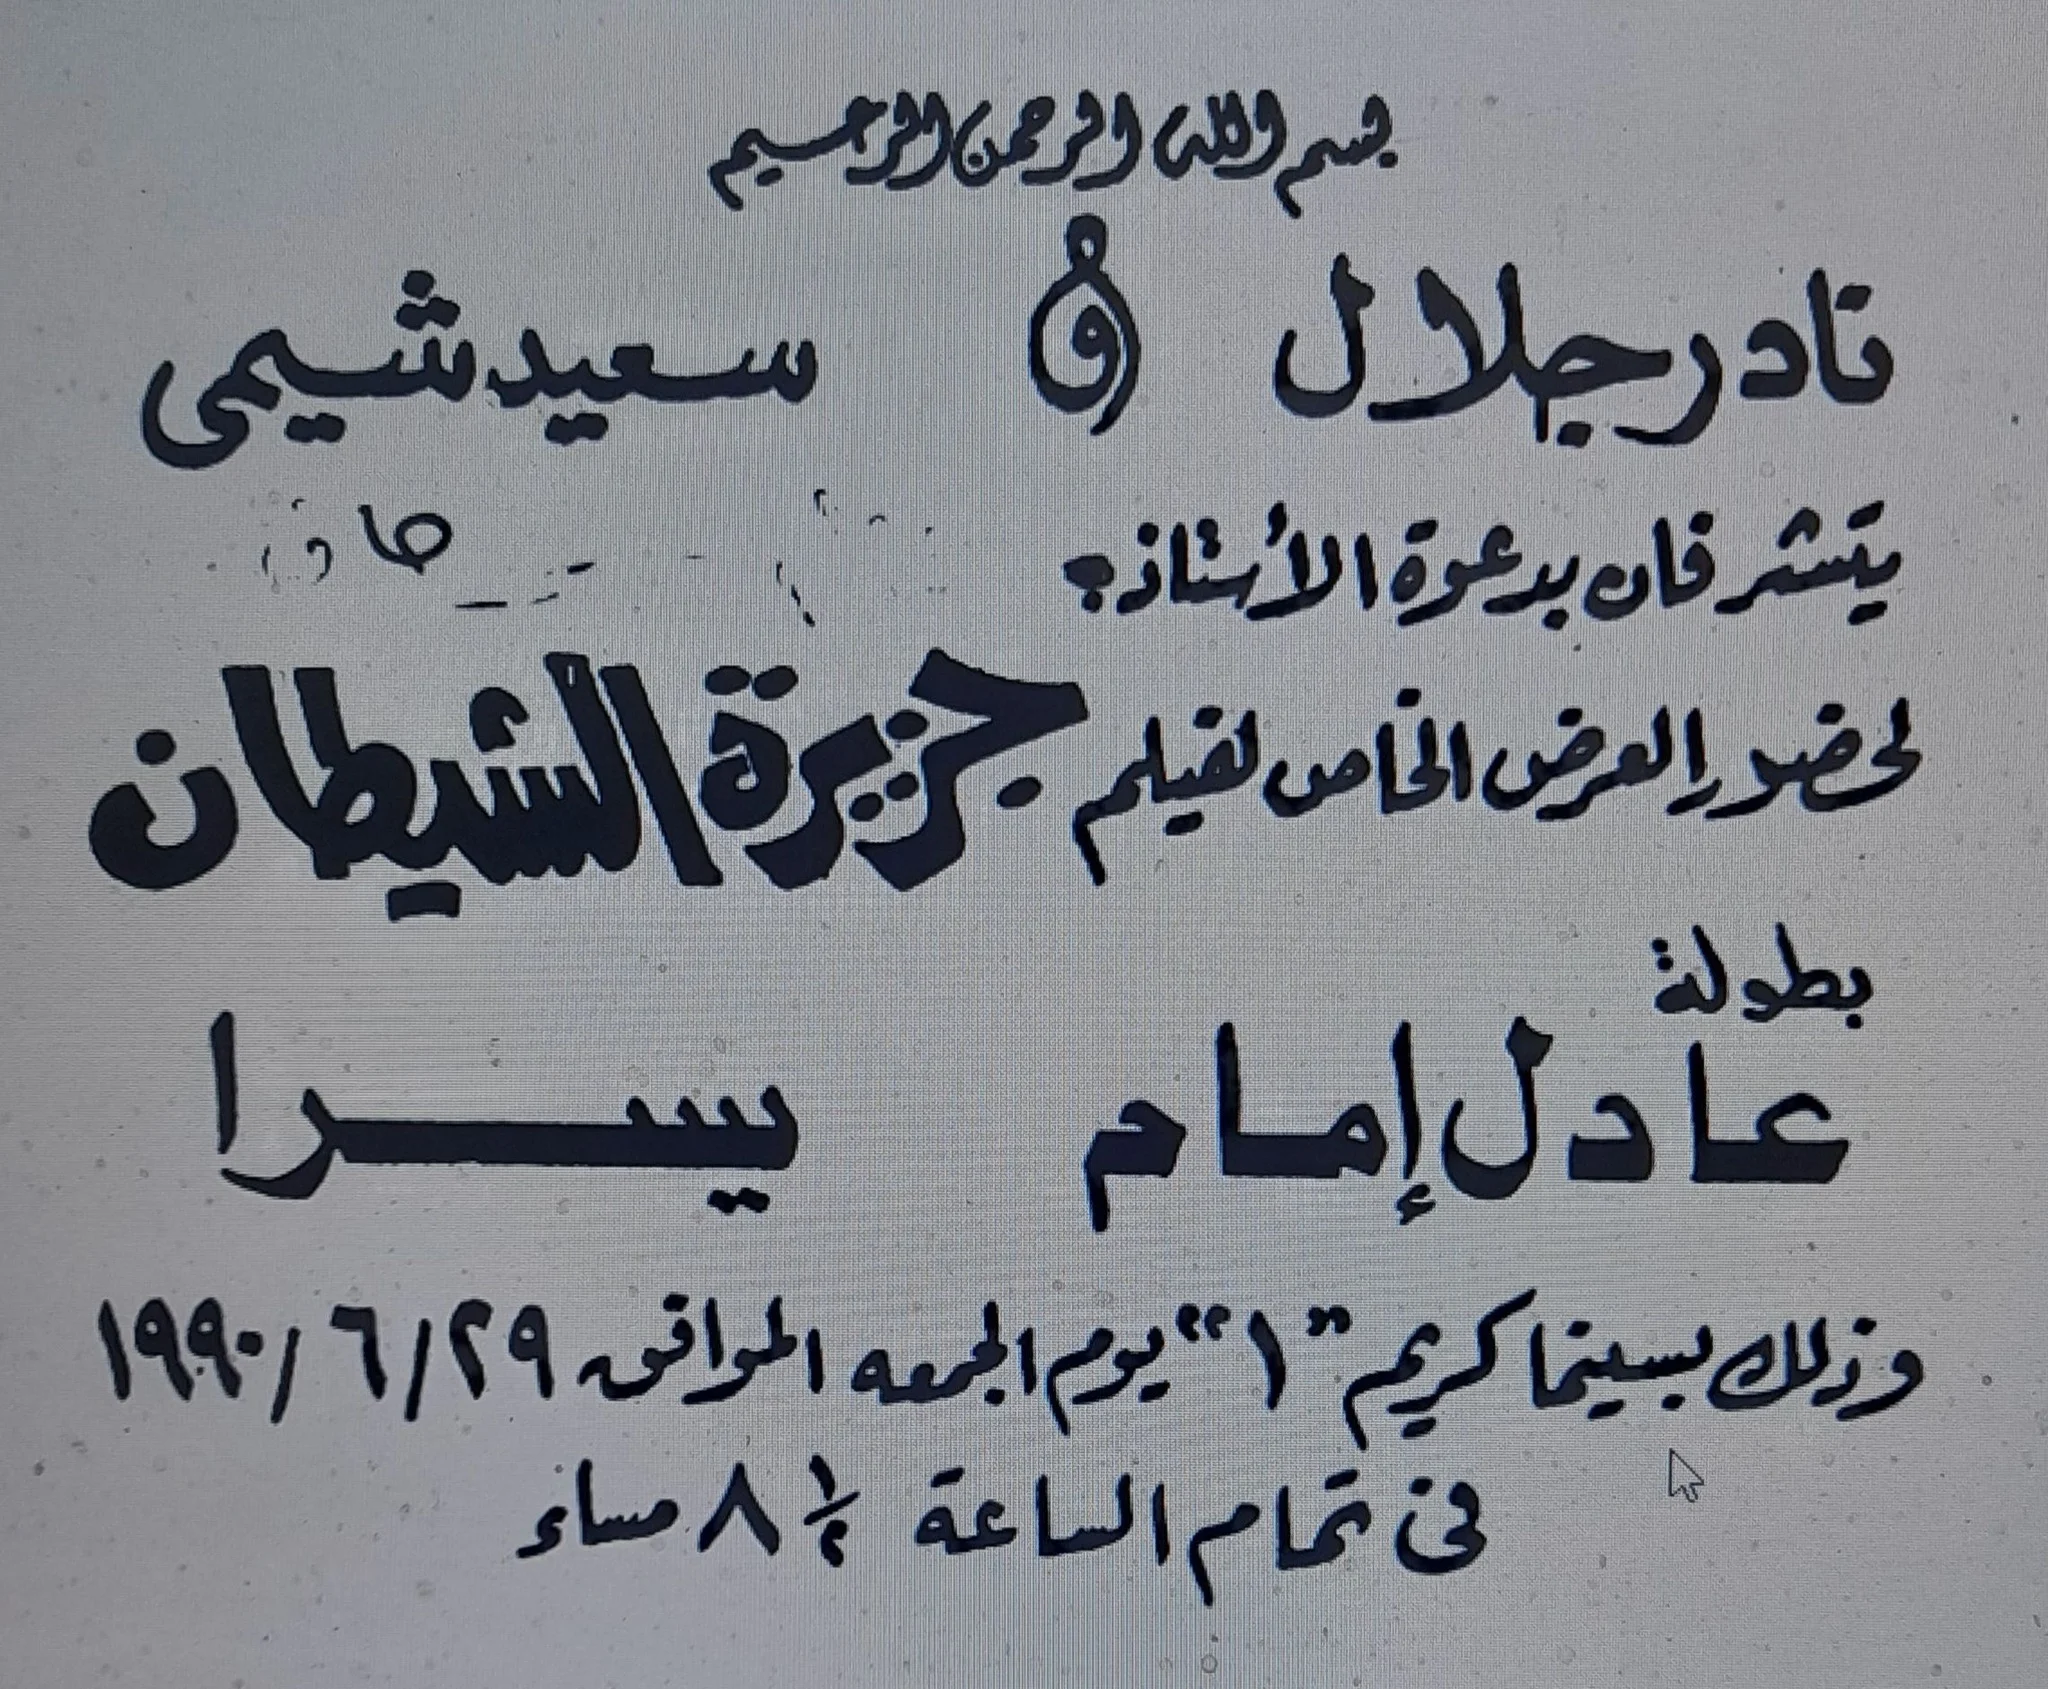 بسم الله الرحمن الرحيم
نادر جلال و سعيد شيمى
يتشرفان بدعوة الأستاذ:
لحضور العرض الخاص لفيلم جزيرة الشيطان
بطولة
عادل إمام يسرا
وذلك بسينما كريم "١" يوم الجمعه الموافق ٢٩/٦/١٩٩٠
فى تمام الساعة ½ ٨ مساء